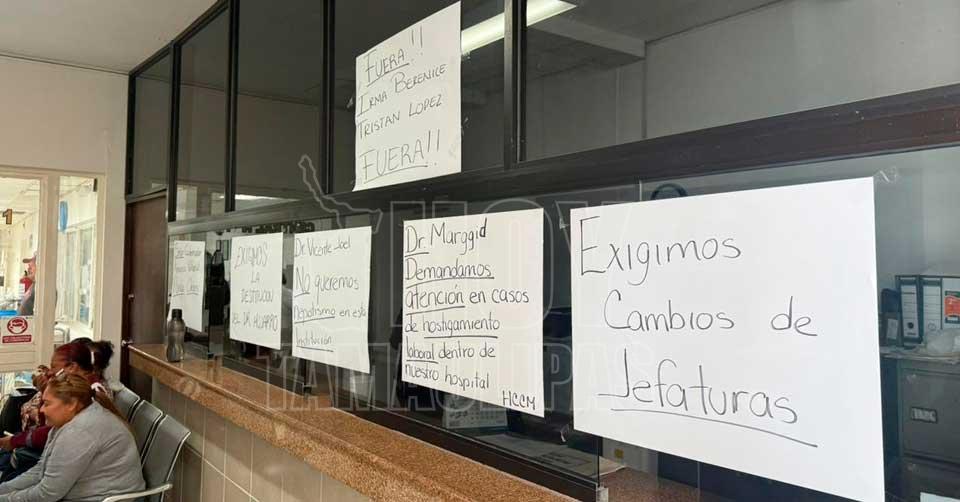 FUERA!!
IRMA BERENICE
TRISTAN LOPEZ
FUERA!!
EXIGIMOS
LA
DESTITUCION
DEL DR. NUARRO
Dr. Vicente Joel
NO queremos
nepotismo en esta
Institución
Dr. Marggid
Demandamos
atención en casos
de hostigamiento
laboral dentro de
nuestro hospital
HCCM
Exigimos
Cambios de
Jefaturas
HOY
TAMAULIPAS
1